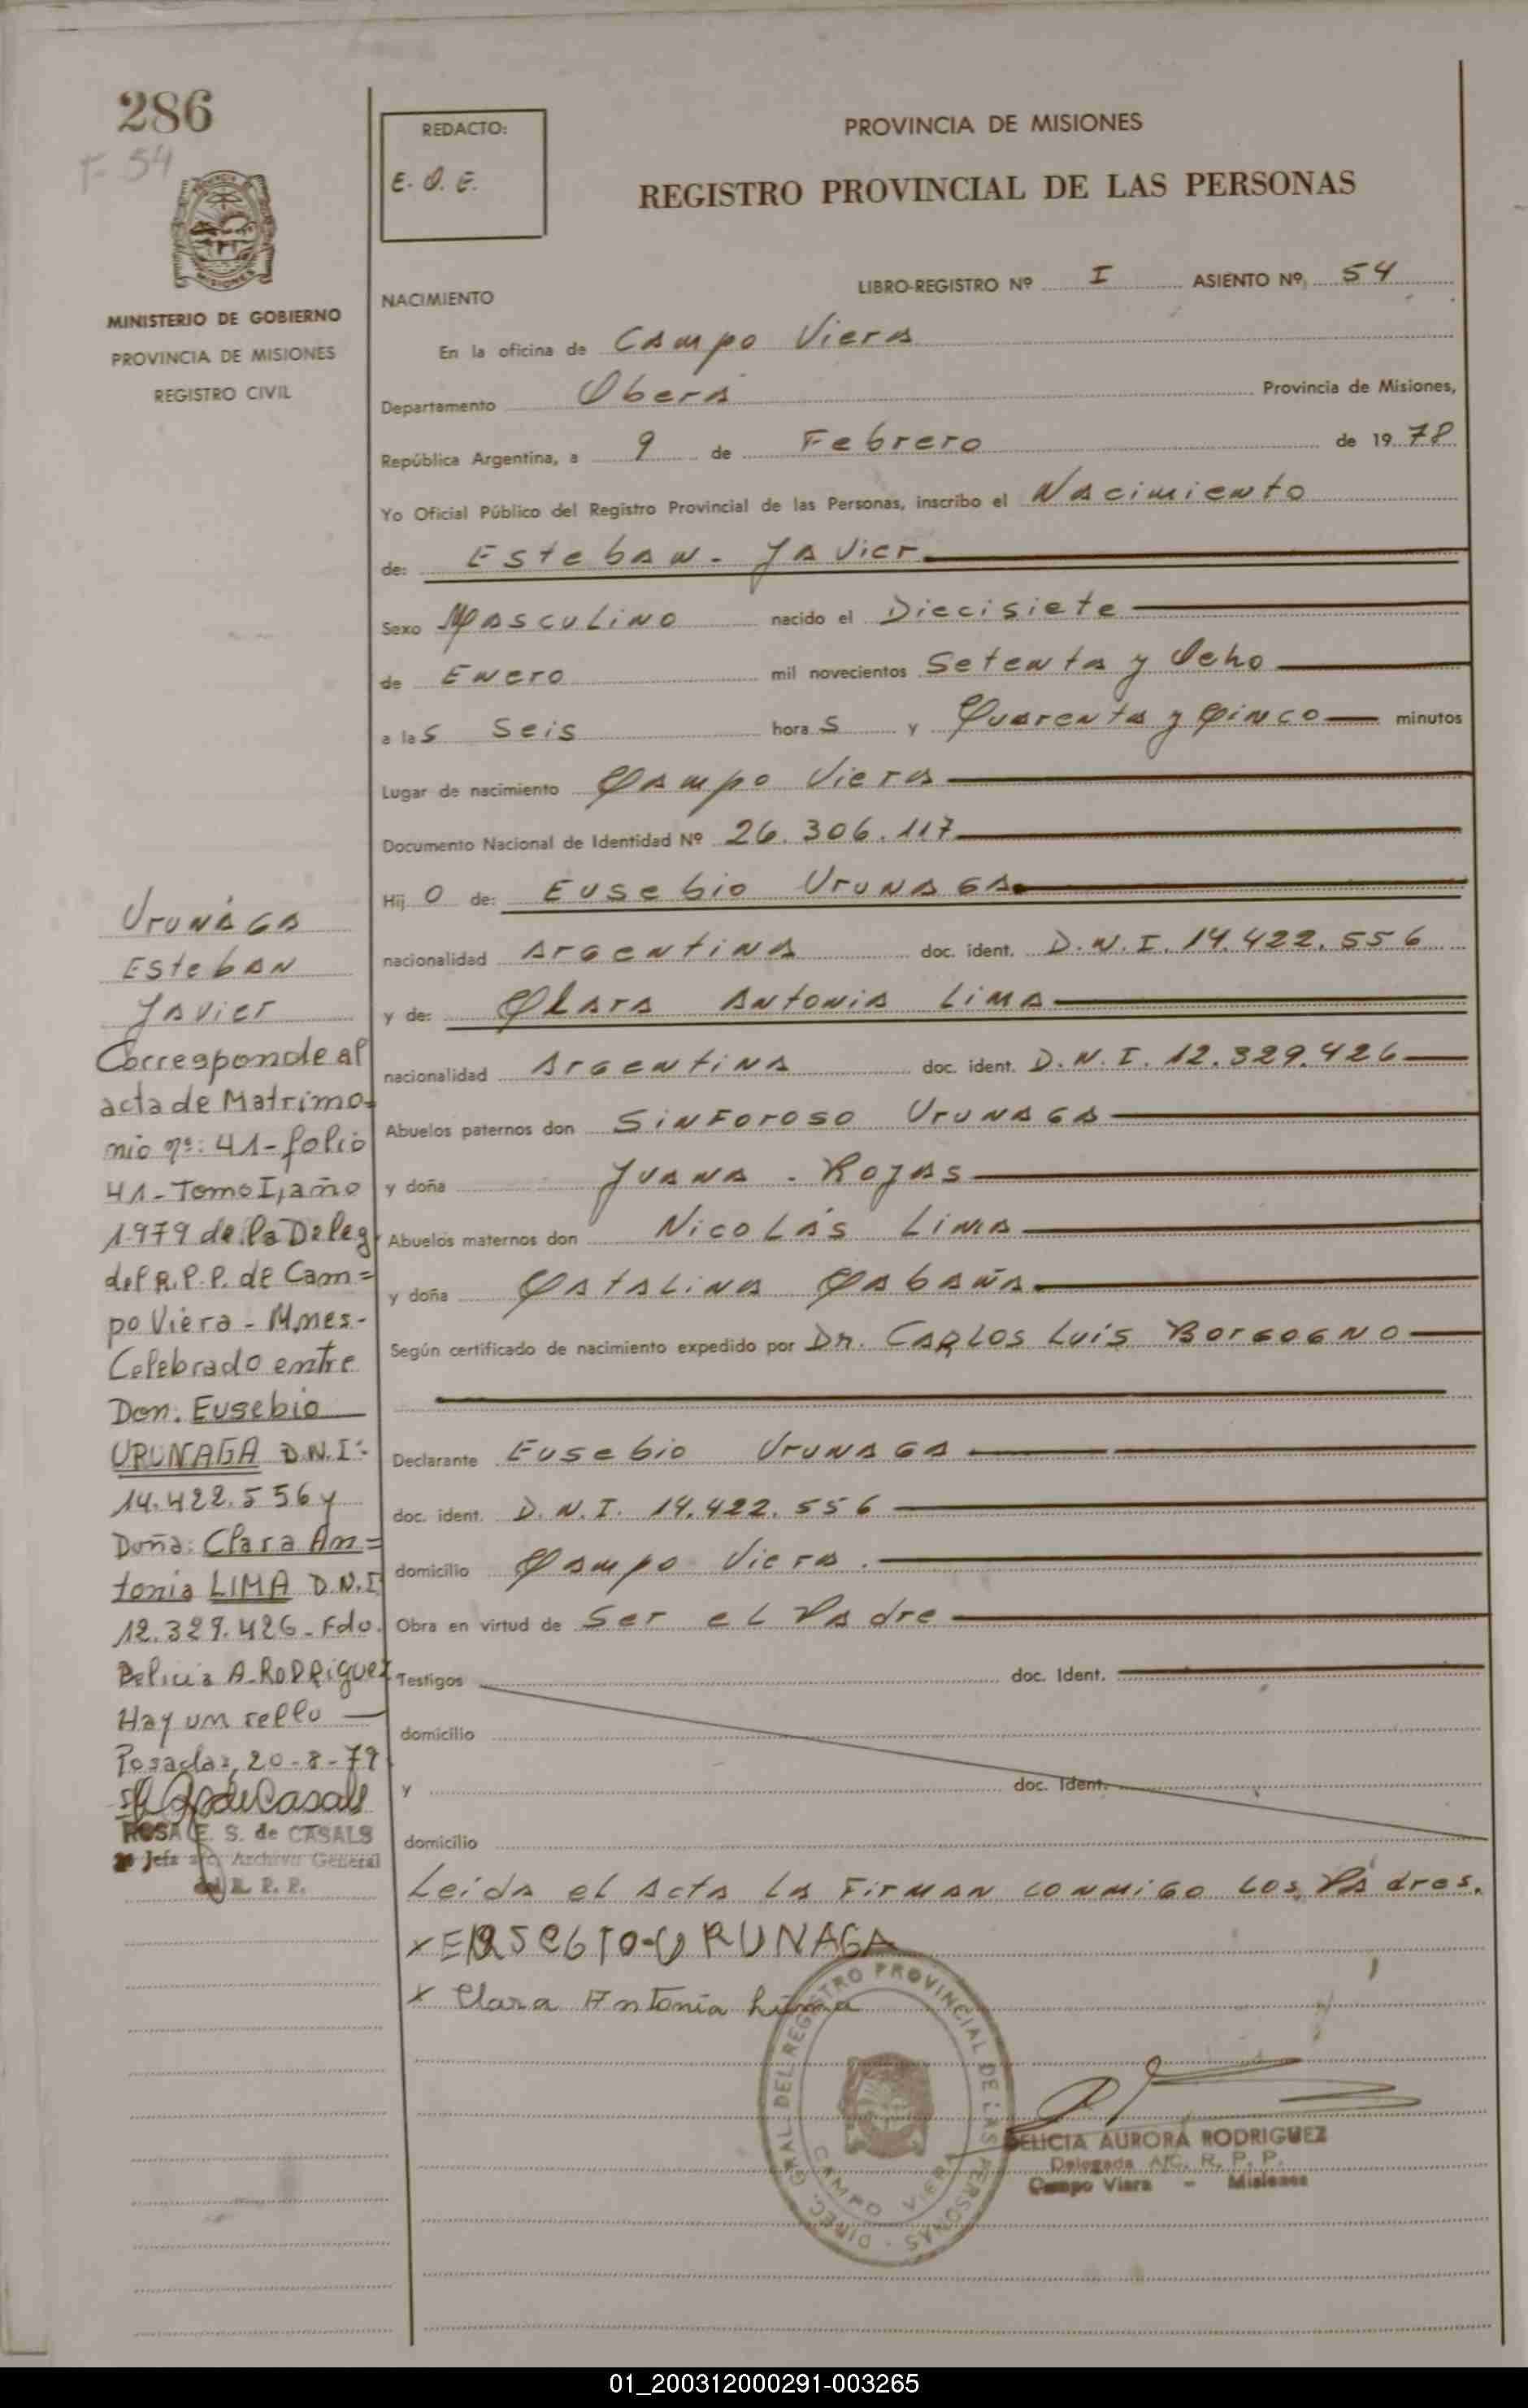 286
F- 54
REDACTO:
E. O. E.
PROVINCIA DE MISIONES
REGISTRO PROVINCIAL DE LAS PERSONAS
MINISTERIO DE GOBIERNO
PROVINCIA DE MISIONES
REGISTRO CIVIL
LIBRO-REGISTRO Nº I ASIENTO Nº 54
NACIMIENTO
En la oficina de Campo Viera
Departamento Obera Provincia de Misiones,
República Argentina, a 9 de Febrero de 1978
Yo Oficial Público del Registro Provincial de las Personas, inscribo el Nacimiento
de: Esteban - Javier
Sexo Masculino nacido el Diecisiete
de Enero mil novecientos Setenta y Ocho
a las Seis horas y Cuarenta y Cinco minutos
Lugar de nacimiento Campo Viera
Documento Nacional de Identidad Nº 26.306.117
Hijo de: Eusebio Urunaga
nacionalidad Argentina doc. ident. D.N.I. 14.422.556
y de: Clara Antonia Lima
nacionalidad Argentina doc. ident. D.N.I. 12.329.426
Abuelos paternos don Sinforoso Urunaga
y doña Juana - Rojas
Abuelos maternos don Nicolás Lima
y doña Catalina Cabaña
Según certificado de nacimiento expedido por Dr. Carlos Luis Borgogno
Declarante Eusebio Urunaga
doc. ident. D.N.I. 14.422.556
domicilio Campo Viera.
Obra en virtud de Ser el Padre
Testigos doc. Ident.
domicilio
y doc. Ident.
domicilio
Leida el Acta la Firman conmigo los Padres.
x EUSEBIO-URUNAGA
x Clara Antonia Lima
Urunàga
Esteban
Javier
Corresponde al
acta de Matrimo-
nio nº: 41- folio
41- Tomo I, año
1979 de la Deleg.
del R.P.P. de Cam=
po Viera - Mnes.-
Celebrado entre
Don. Eusebio
URUNAGA D.N.I:
14.422.556 y
Doña: Clara An=
tonia LIMA D.N.I
12.329.426- Fdo.
Delicia A. Rodriguez
Hay un sello
Posadas, 20-8-79
ROSA E. S. de CASALS
Jefa a/c. Archivo General
del R. P. P.
DIREC. GRAL. DEL REGISTRO PROVINCIAL DE LAS PERSONAS
CAMPO VIERA
DELICIA AURORA RODRIGUEZ
Delegada A/C. R. P. P.
Campo Viera - Misiones
01_200312000291-003265